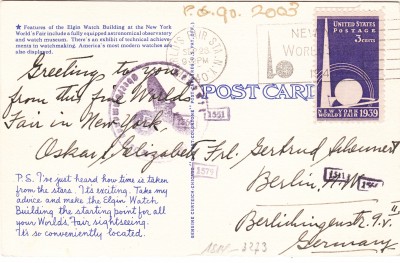 P.6.90. 2003
★ Features of the Elgin Watch Building at the New York
World's Fair include a fully equipped astronomical observatory
and watch museum. There's an exhibit of technical achieve-
ments in watchmaking. America's most modern watches are
also displayed.
UNITED STATES
POSTAGE
3 CENTS
NEW YORK
WORLD'S FAIR 1939
N.Y.
PM
NEW
WORLD
1940
Greeting to you
from this fine Worlds
Fair in New York.
Oskar Elizabeth
POST CARD
1551
1575
Frl. Gertrud
Berlin, N.W.
1541
Berlichingenstr. 9.v"
Germany
P.S. I've just heard how time is taken
from the stars. It's exciting. Take my
advice and make the Elgin Watch
Building the starting point for all
your World's Fair sightseeing.
It's so conveniently located.